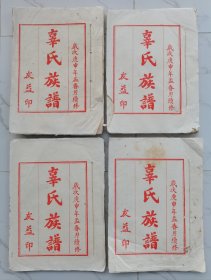 歲次庚申年孟春月續修
辜氏族譜
友益印
歲次庚申年孟春月續修
辜氏族譜
友益印
歲次庚申年孟春月續修
辜氏族譜
友益印
歲次庚申年孟春月續修
辜氏族譜
友益印